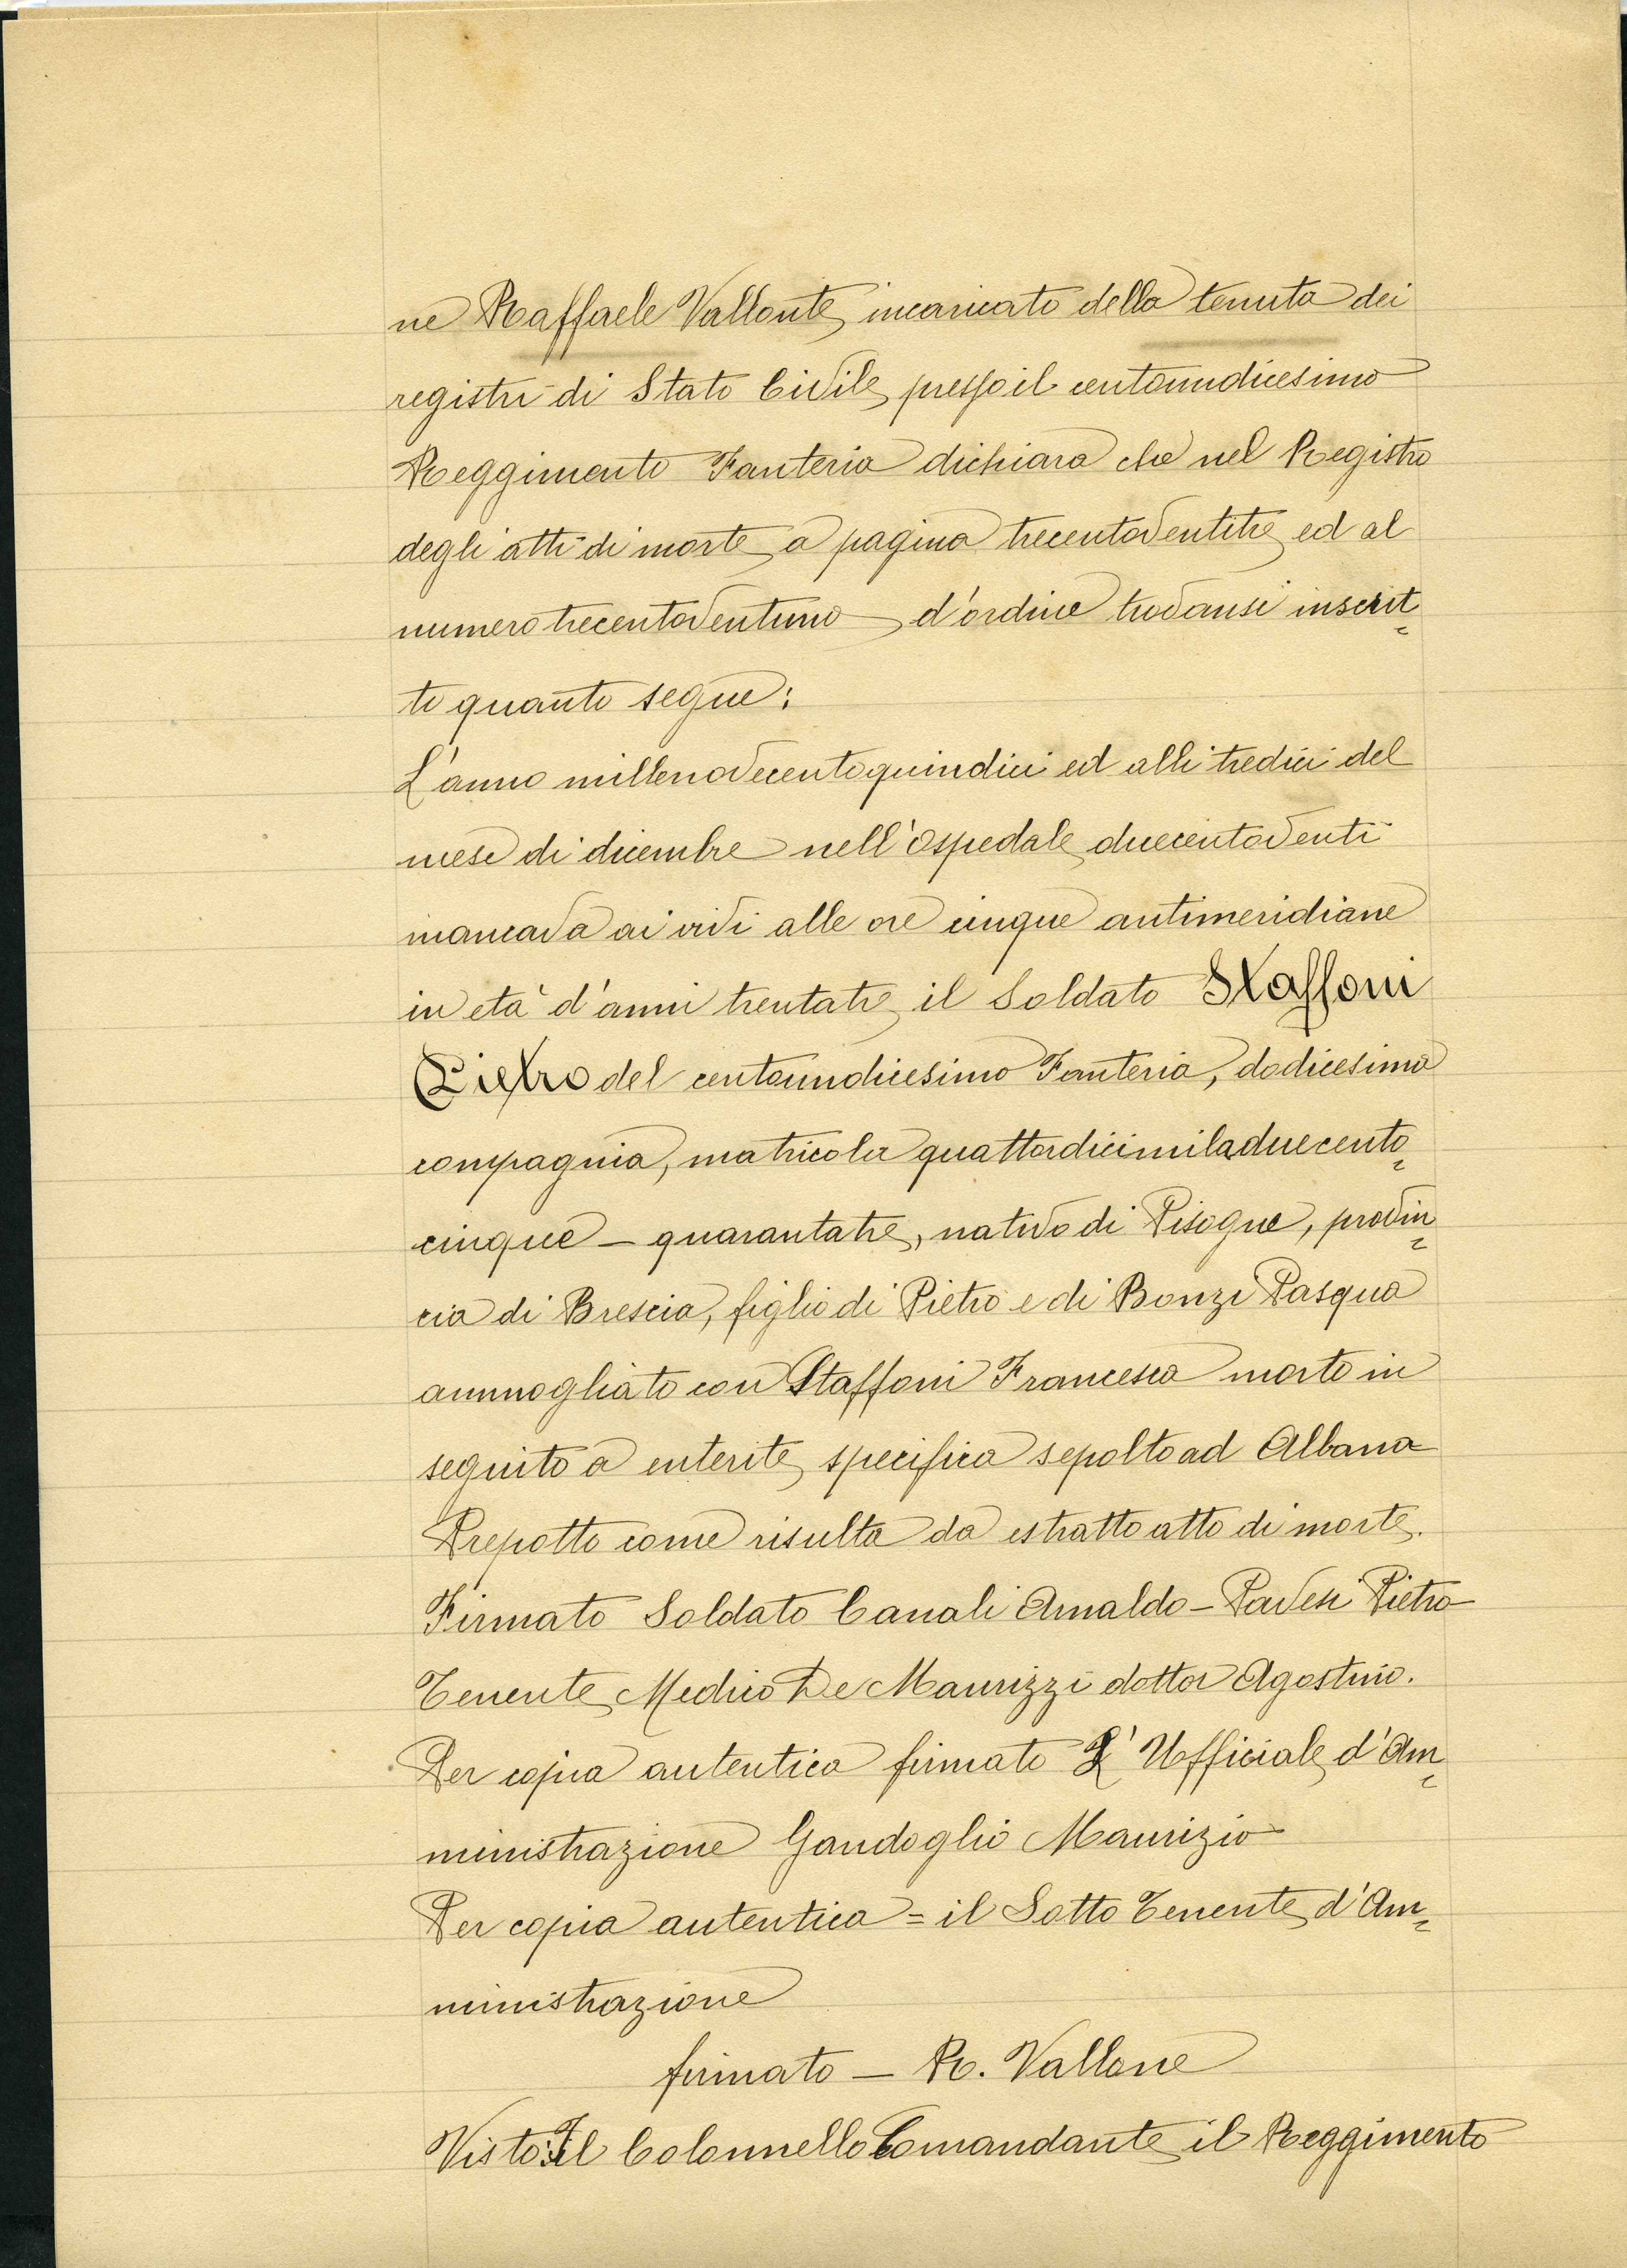 ne Raffaele Vallonte incaricato della tenuta dei
registri di Stato Civile presso il centoundicesimo
Reggimento Fanteria dichiara che nel Registro
degli atti di morte a pagina trecentoventitre ed al
numero trecentoventuno d'ordine trovansi inscrit=
to quanto segue:
L'anno millenovecentoquindici ed alli tredici del
mese di dicembre nell'Ospedale duecentoventi
mancava ai vivi alle ore cinque antimeridiane
in età d'anni trentatre il Soldato Staffoni
Pietro del centoundicesimo Fanteria, dodicesima
compagnia, matricola quattordicimiladuecento=
cinque – quarantatre, nativo di Pisogne, provin=
cia di Brescia, figlio di Pietro e di Bonzi Pasqua
ammogliato con Staffoni Francesca morto in
seguito a enterite specifica sepolto ad Albana
Prepotto come risulta da estratto atto di morte.
Firmato Soldato Canali Arnaldo – Pavesi Pietro
Tenente Medico De Maurizzi dottor Agostino.
Per copia autentica firmato L'Ufficiale d'Am=
ministrazione Gandoglio Maurizio
Per copia autentica = il Sotto Tenente d'Am=
ministrazione
firmato – R. Vallone
Visto: Il Colonnello Comandante il Reggimento